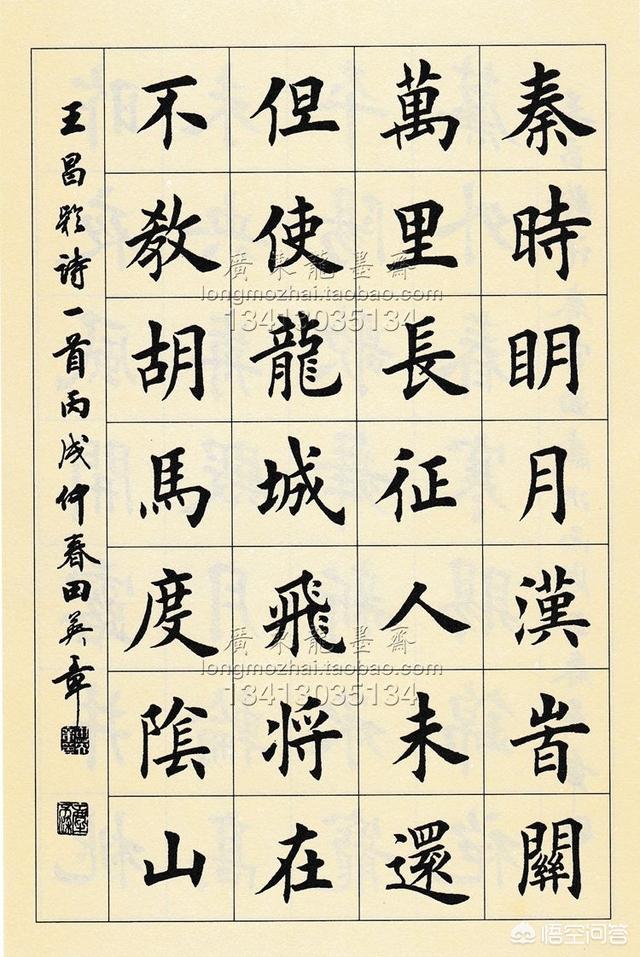 秦時眀月漢旹關
萬里長征人未還
但使龍城飛将在
不教胡馬度隂山
王昌齡詩一首丙戌仲春田英章
廣東龍墨齋
longmozhai.taobao.com
13413035134
廣東龍墨齋
longmozhai.taobao.com
13413035134
悟空问答